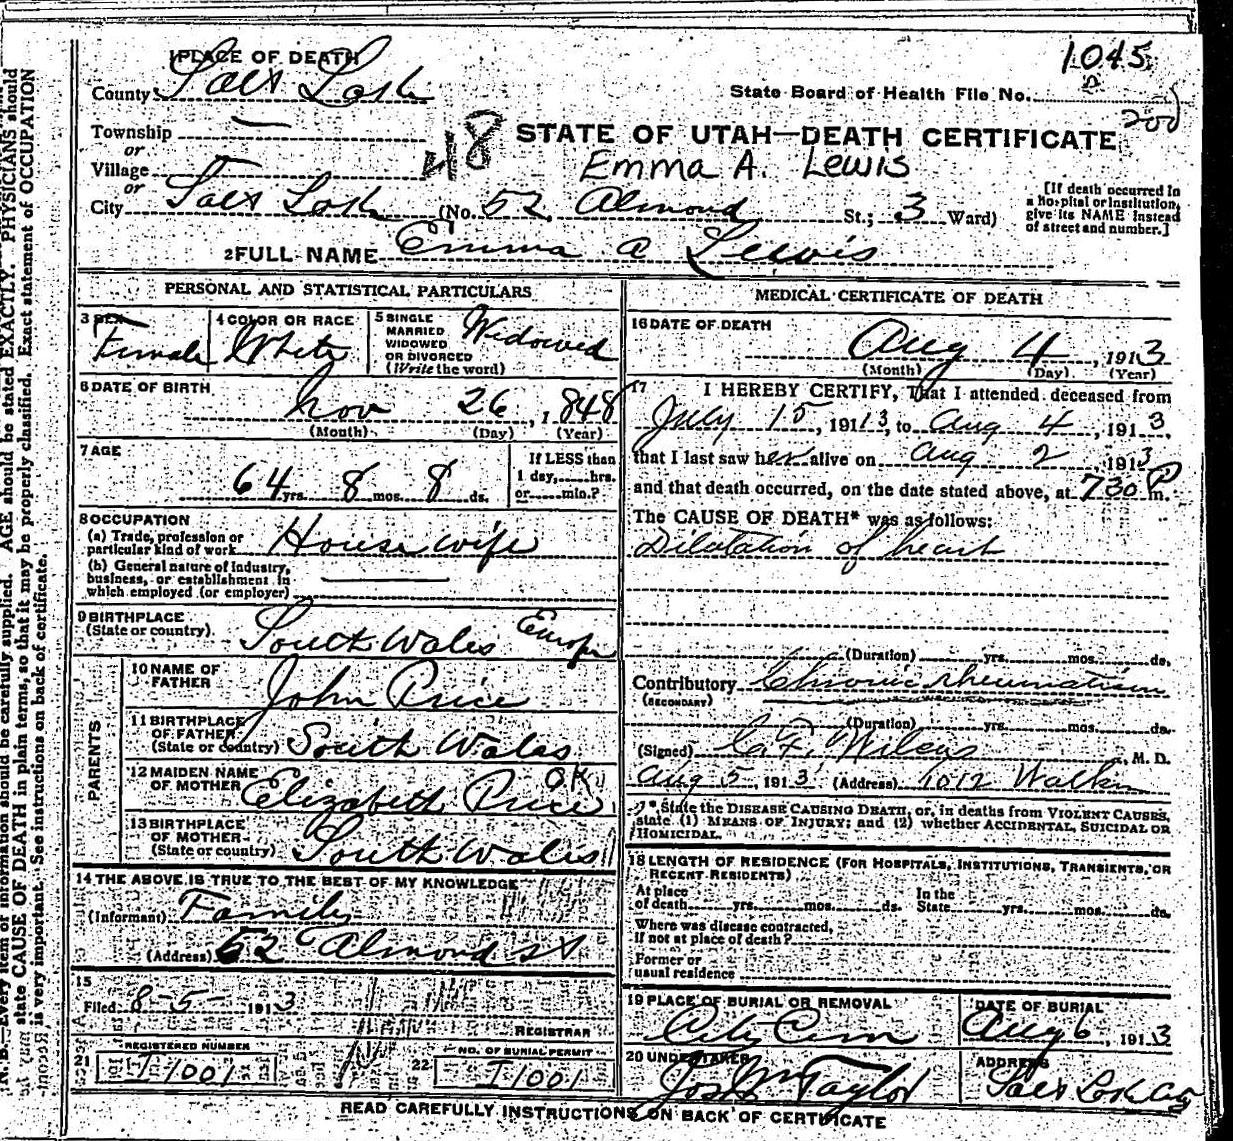 1045
State Board of Health File No.
1 PLACE OF DEATH
County Salt Lake
Township —
or
Village
or
City Salt Lake (No. 52 Almond St.; 3 Ward)
48
STATE OF UTAH—DEATH CERTIFICATE
Emma A. Lewis
[If death occurred in
a hospital or institution,
give its NAME instead
of street and number.]
2 FULL NAME Emma A Lewis
PERSONAL AND STATISTICAL PARTICULARS
3 SEX Female
4 COLOR OR RACE White
5 SINGLE
MARRIED
WIDOWED
OR DIVORCED
(Write the word) Widowed
6 DATE OF BIRTH
Nov 26, 1848
(Month) (Day) (Year)
7 AGE
64 yrs. 8 mos. 8 ds.
If LESS than
1 day, hrs.
or min.?
8 OCCUPATION
(a) Trade, profession or
particular kind of work House wife
(b) General nature of industry,
business, or establishment in
which employed (or employer)
9 BIRTHPLACE
(State or country) South Wales Europe
PARENTS
10 NAME OF
FATHER John Price
11 BIRTHPLACE
OF FATHER
(State or country) South Wales
12 MAIDEN NAME
OF MOTHER Elizabeth Price OK
13 BIRTHPLACE
OF MOTHER
(State or country) South Wales
14 THE ABOVE IS TRUE TO THE BEST OF MY KNOWLEDGE
(Informant) Family
(Address) 52 Almond St
15
Filed 8-5- 1913
REGISTRAR
REGISTERED NUMBER
21 I1001
NO. OF BURIAL PERMIT
22 I1001
MEDICAL CERTIFICATE OF DEATH
16 DATE OF DEATH
Aug 4, 1913
(Month) (Day) (Year)
17 I HEREBY CERTIFY, That I attended deceased from
July 15, 1913, to Aug 4, 1913,
that I last saw her alive on Aug 2, 1913
and that death occurred, on the date stated above, at 730 P m.
The CAUSE OF DEATH* was as follows:
Dilatation of heart
(Duration) yrs. mos. ds.
Contributory Chronic rheumatism
(SECONDARY)
(Duration) yrs. mos. ds.
(Signed) , M. D.
Aug 5, 1913 (Address) 1012 Walker
*State the DISEASE CAUSING DEATH, or, in deaths from VIOLENT CAUSES,
state (1) MEANS OF INJURY; and (2) whether ACCIDENTAL, SUICIDAL OR
HOMICIDAL.
18 LENGTH OF RESIDENCE (FOR HOSPITALS, INSTITUTIONS, TRANSIENTS, OR
RECENT RESIDENTS)
At place
of death yrs. mos. ds.
In the
State yrs. mos. ds.
Where was disease contracted,
if not at place of death?
Former or
usual residence
19 PLACE OF BURIAL OR REMOVAL
City Cem
DATE OF BURIAL
Aug 6, 1913
20 UNDERTAKER
Jos Wm Taylor
ADDRESS
Salt Lake City
READ CAREFULLY INSTRUCTIONS ON BACK OF CERTIFICATE
N. B.—Every item of information should be carefully supplied. AGE should be stated EXACTLY. PHYSICIANS should
state CAUSE OF DEATH in plain terms, so that it may be properly classified. Exact statement of OCCUPATION
is very important. See instructions on back of certificate.